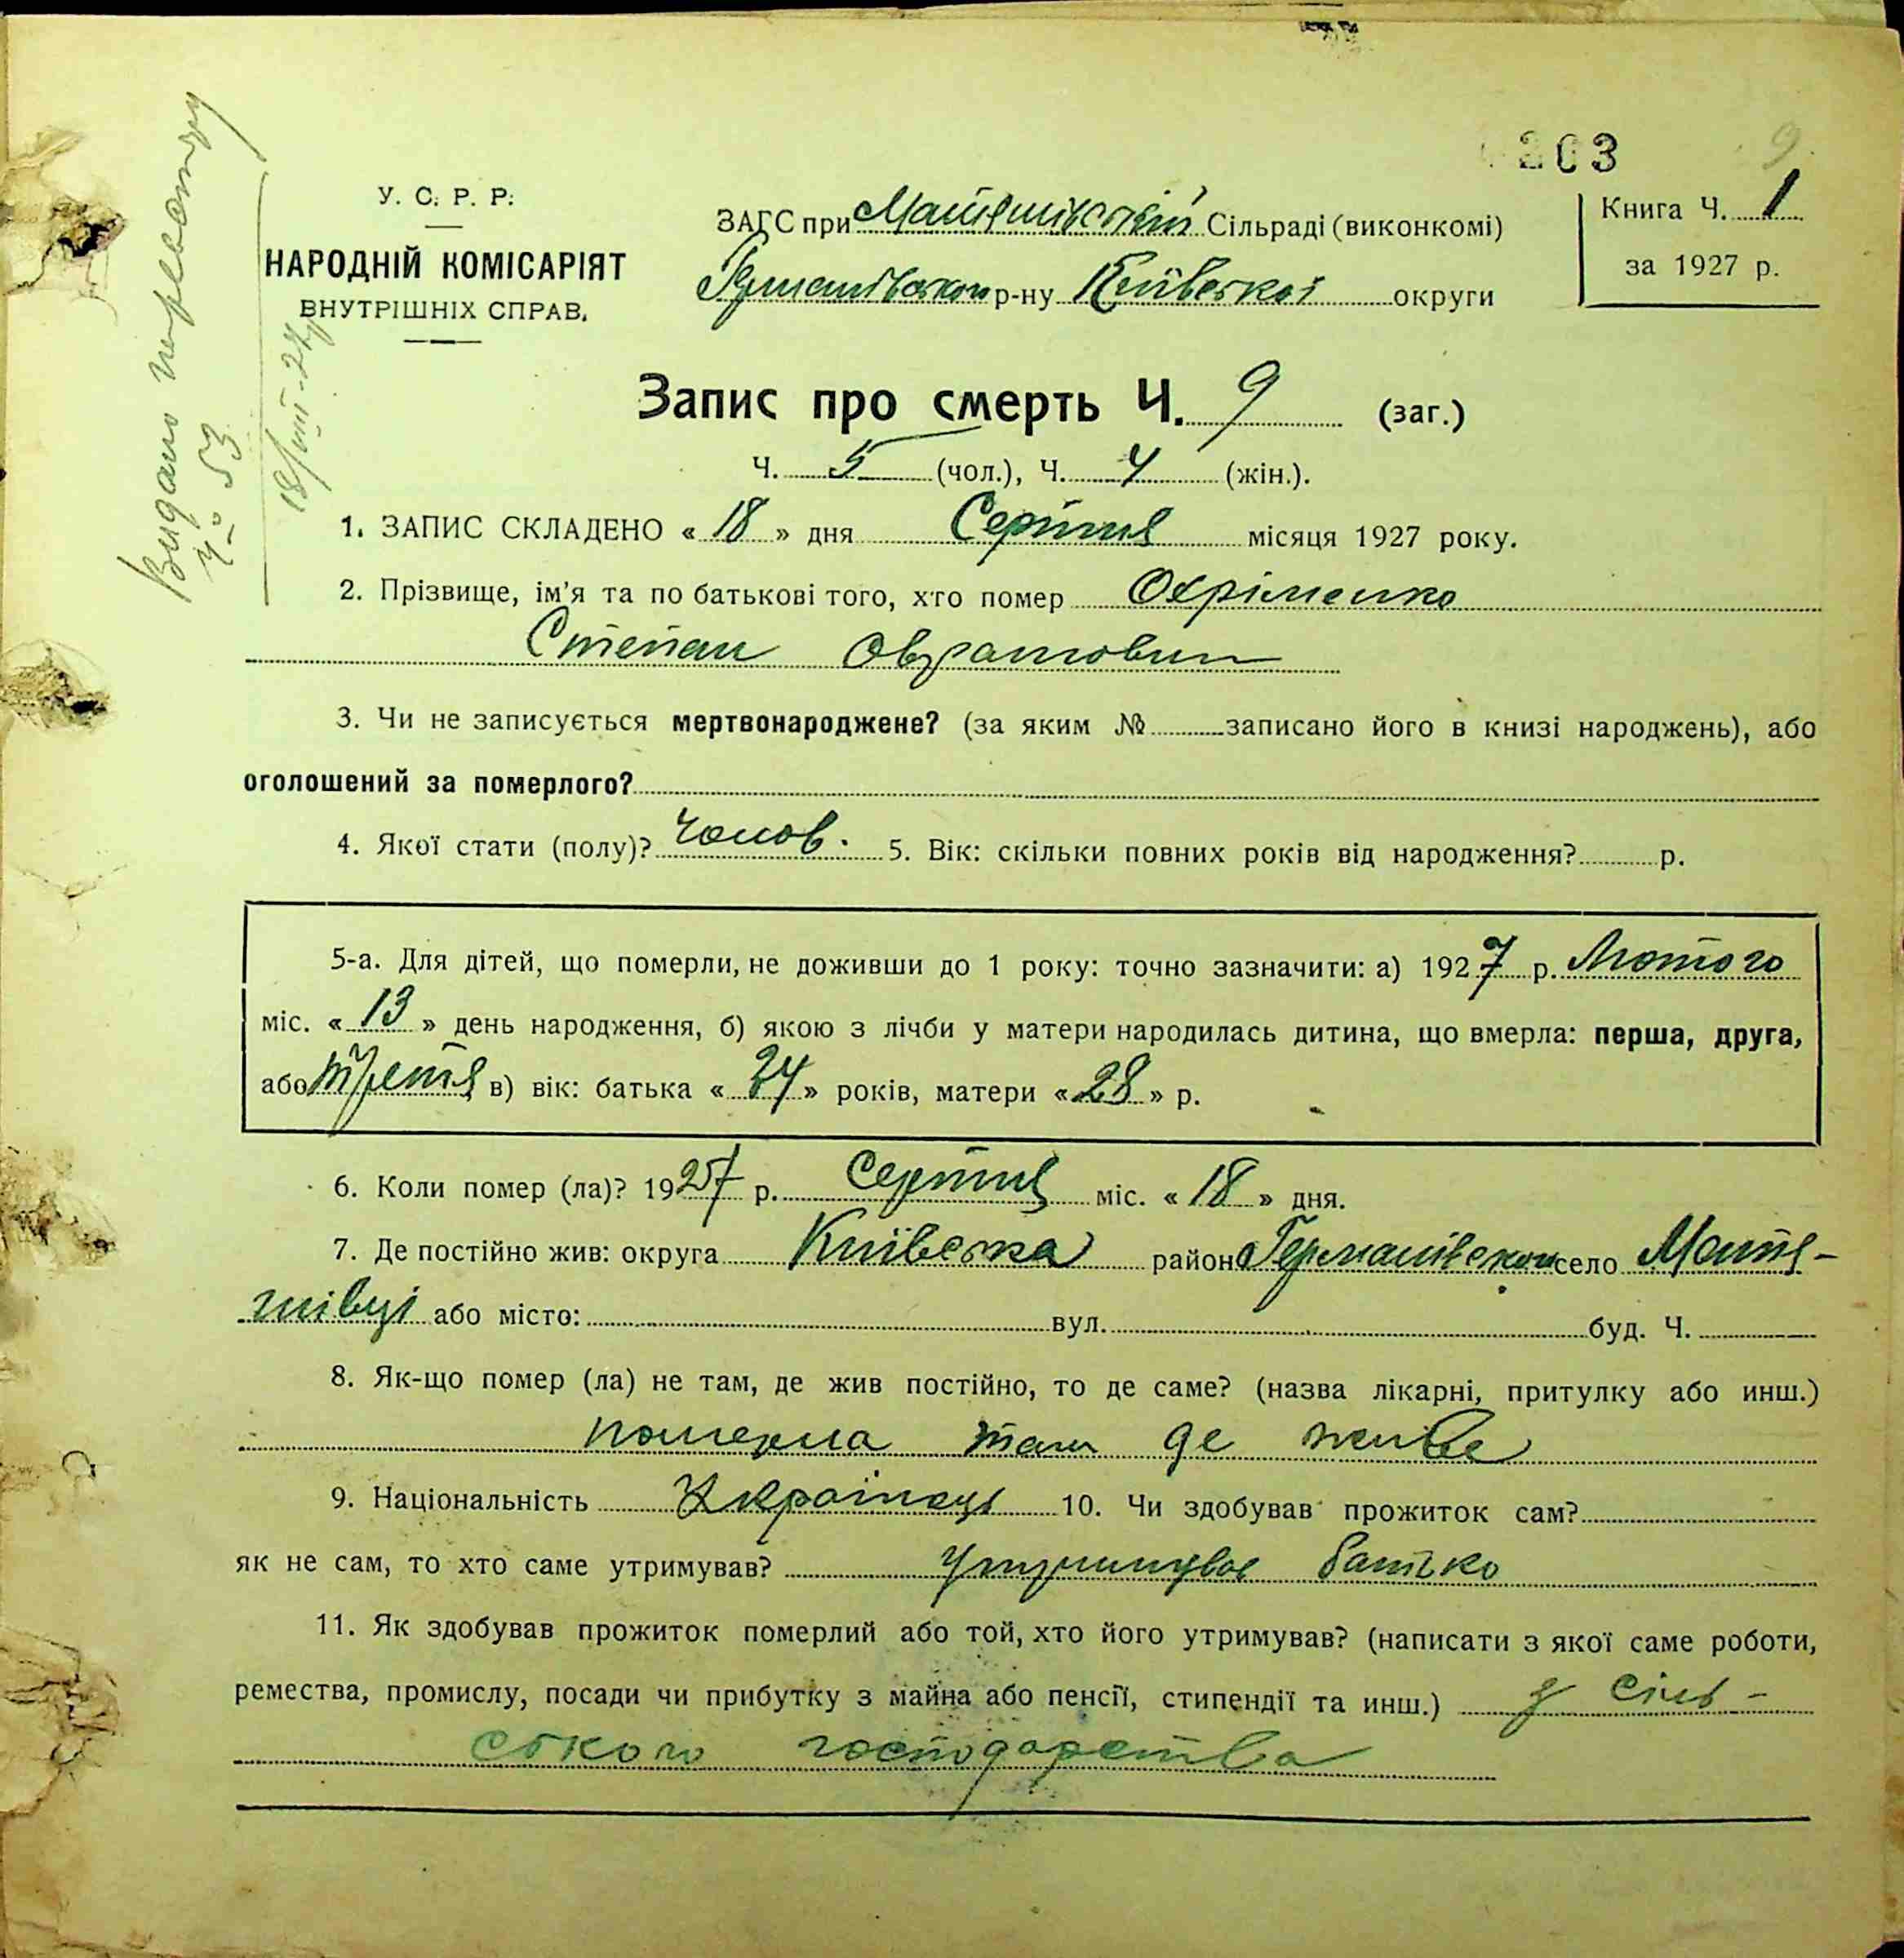 203 9
У. С. Р. Р.
НАРОДНІЙ КОМІСАРІЯТ
ВНУТРІШНІХ СПРАВ.
ЗАГС при Матяшівській Сільраді (виконкомі)
р-ну Київської округи
Книга Ч. 1
за 1927 р.
Видано
Ч. 53
18/VIII-27р
Запис про смерть Ч. 9 (заг.)
Ч. 5 (чол.), Ч. 4 (жін.).
1. ЗАПИС СКЛАДЕНО « 18 » дня Серпня місяця 1927 року.
2. Прізвище, ім'я та по батькові того, хто помер Охріменко
Степан
3. Чи не записується мертвонароджене? (за яким № записано його в книзі народжень), або
оголошений за померлого?
4. Якої стати (полу)? чолов. 5. Вік: скільки повних років від народження? р.
5-а. Для дітей, що померли, не доживши до 1 року: точно зазначити: а) 1927 р. Лютого
міс. « 13 » день народження, б) якою з лічби у матери народилась дитина, що вмерла: перша, друга,
або третя в) вік: батька « » років, матери « 28 » р.
6. Коли помер (ла)? 1927 р. Серпня міс. « 18 » дня.
7. Де постійно жив: округа Київська район Германівськои село Матя-
шівці або місто: вул. буд. Ч.
8. Як-що помер (ла) не там, де жив постійно, то де саме? (назва лікарні, притулку або инш.)
померла там де живе
9. Національність Українець 10. Чи здобував прожиток сам?
як не сам, то хто саме утримував? утримував батько
11. Як здобував прожиток померлий або той, хто його утримував? (написати з якої саме роботи,
ремества, промислу, посади чи прибутку з майна або пенсії, стипендії та инш.) з сіль-
ського господарства